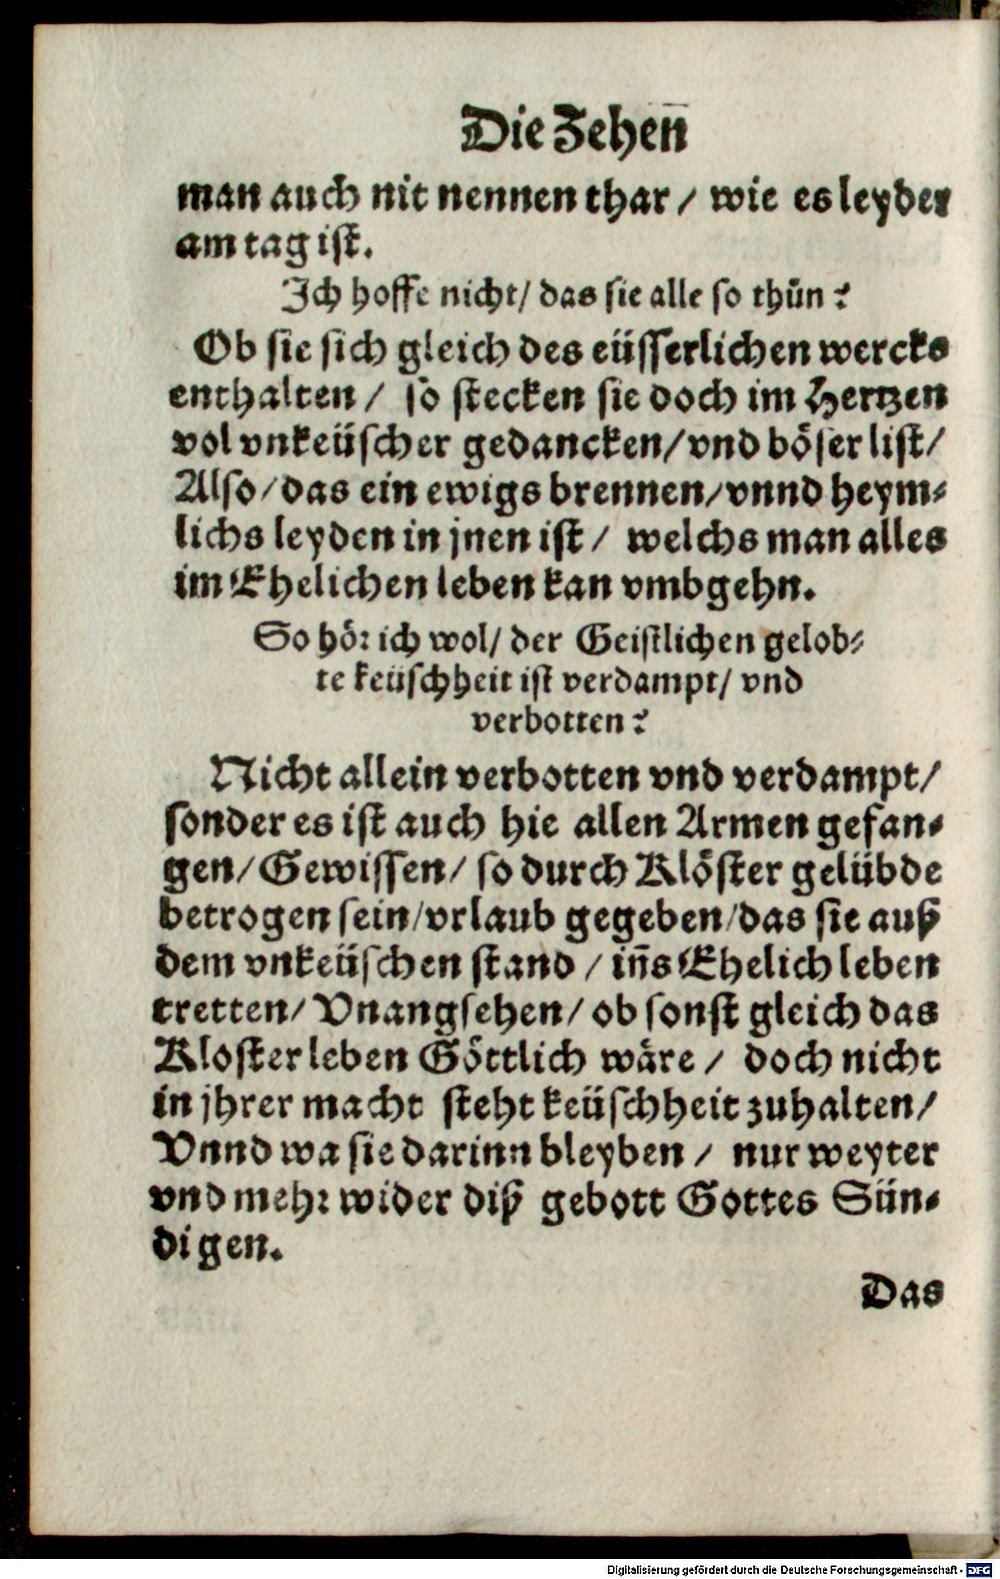 Die Zehen̄
man auch nit nennen thar / wie es leyder
am tag ist.
Ich hoffe nicht / das sie alle so thůn?
Ob sie sich gleich des eüsserlichen wercks
enthalten / so stecken sie doch im Hertzen
vol vnkeüscher gedancken / vnd böser list /
Also / das ein ewigs brennen / vnnd heym-
lichs leyden in jnen ist / welchs man alles
im Ehelichen leben kan vmbgehn.
So hör ich wol / der Geistlichen gelob-
te keüschheit ist verdampt / vnd
verbotten?
Nicht allein verbotten vnd verdampt /
sonder es ist auch hie allen Armen gefan-
gen / Gewissen / so durch Klöster gelübde
betrogen sein / vrlaub gegeben / das sie auß
dem vnkeüschen stand / in̄s Ehelich leben
tretten / Vnangsehen / ob sonst gleich das
Kloster leben Göttlich wäre / doch nicht
in jhrer macht steht keüschheit zuhalten /
Vnnd wa sie darinn bleyben / nur weyter
vnd mehr wider diß gebott Gottes Sün-
digen.
Das
Digitalisierung gefördert durch die Deutsche Forschungsgemeinschaft - DFG